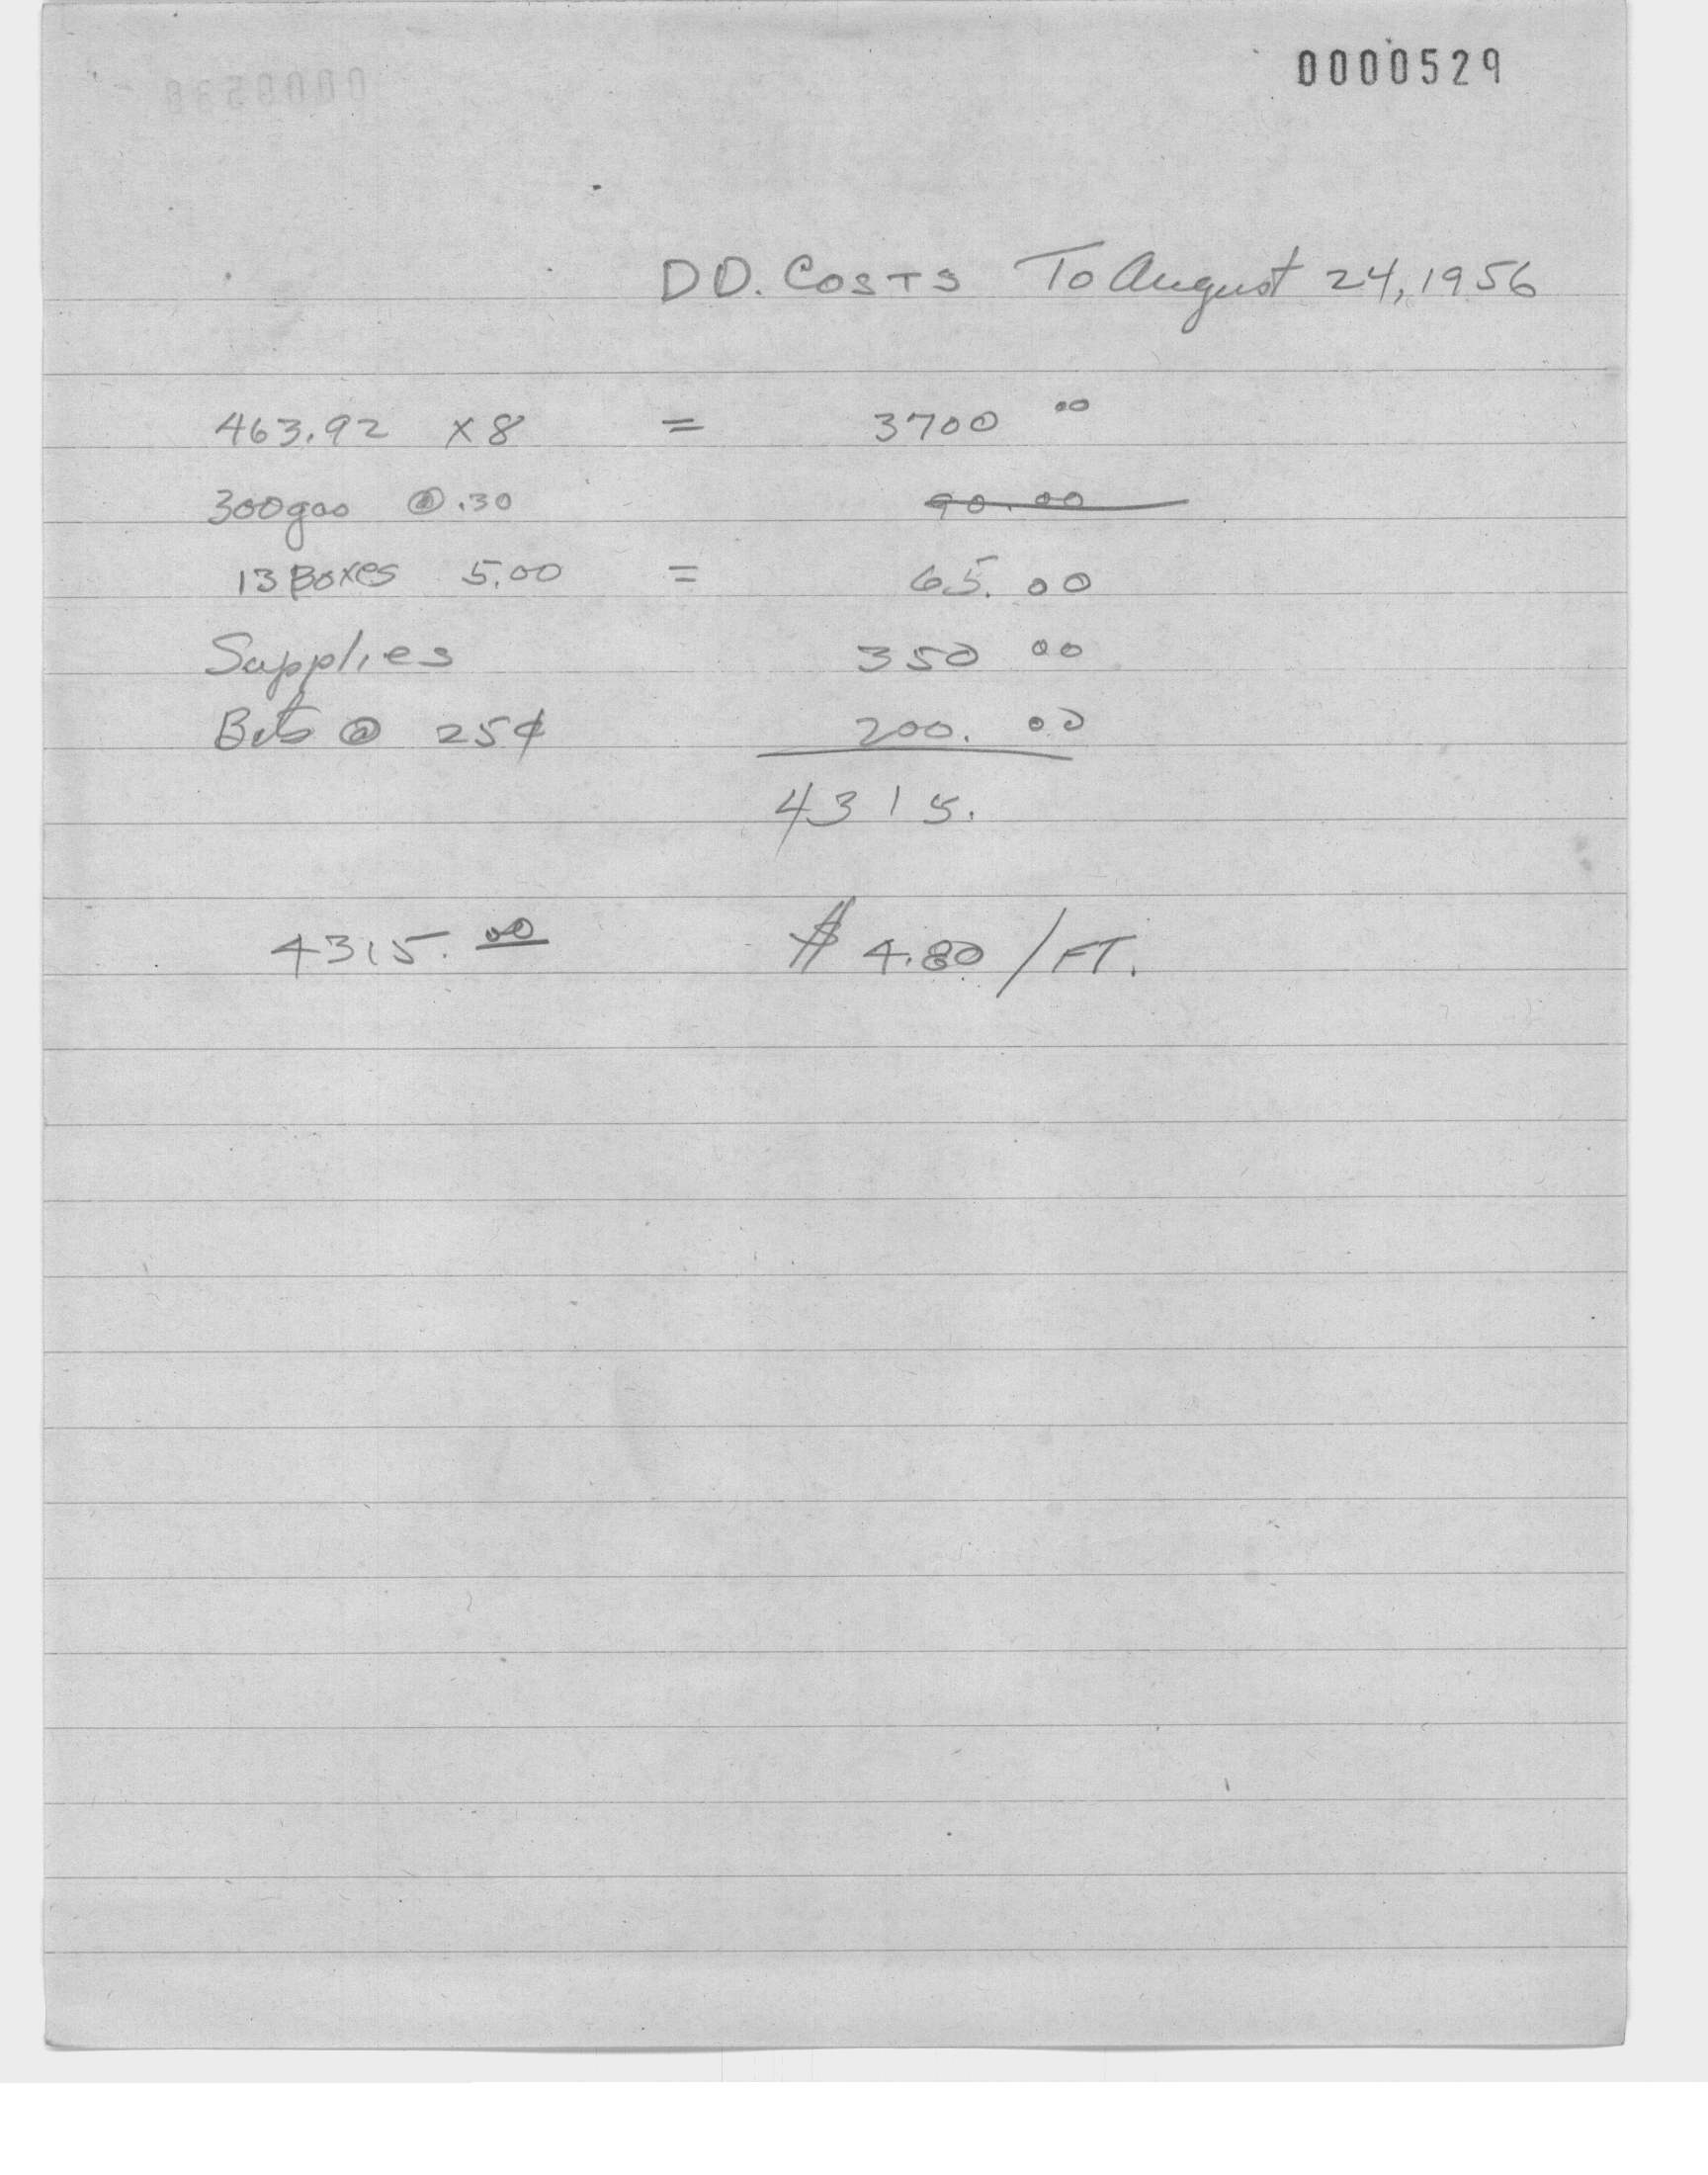 0000529
DD. Costs To August 24, 1956
463.92 x 8 = 3700 00
300 gas @ .30 90.00
13 Boxes 5.00 = 65.00
Supplies 350 00
Bits @ 25¢ 200. 00
4315.
4315.00 $4.80/FT.